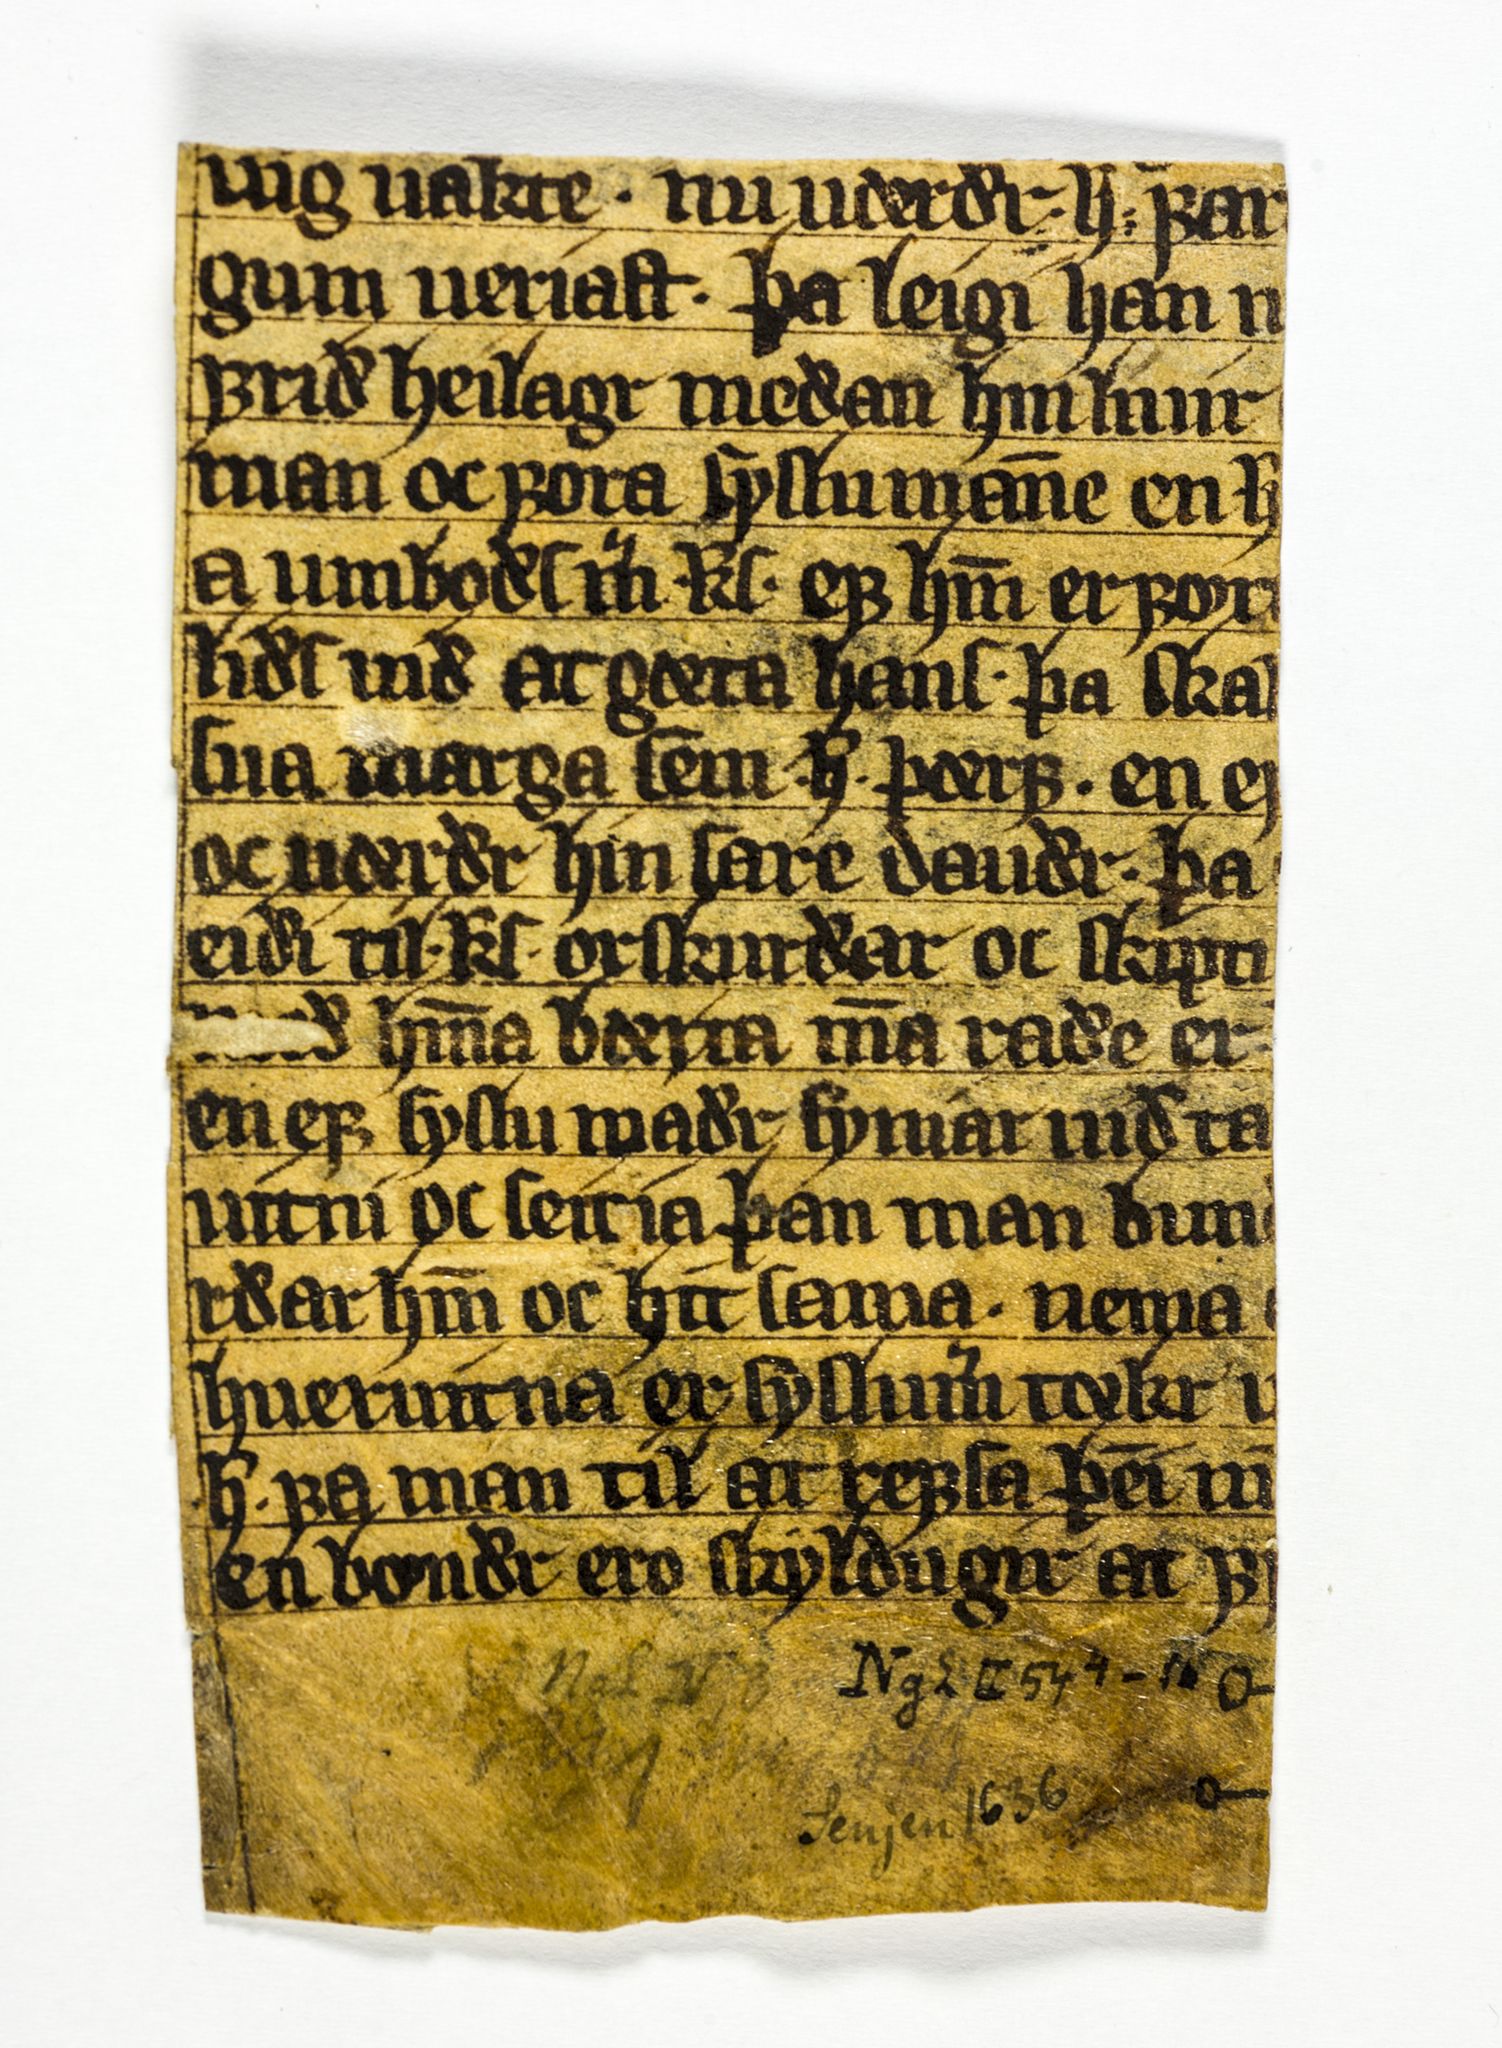 uig uakte · nu uꝺerðr · h̅ · ꝼar
gum ueriast · þa leigi han
ꝼrið heilagr meðan hin huur
man oc ꝼora sẏslumaн̅e en h
a umboðſ m̅ · k̅ſ · eꝼ hm̅ er ꝼor
liðſ uið at gœta hanſ · þa ſkal
ſua marga ſem · h̅ · þœrꝼ · en e
oc uœrðr hin ſare dauðr · þa
eiði til · k̅ſ · orſkurðar oc ſkipti
hm̅a bœzta m̅a raðe er
en eꝼ ſẏſlu maðr ſẏniar uið ta
uitni oc ſetia þan man bun
rðar hm̅ oc hitt ſama · nema
hueruitna er ſẏſlum̅ tœkr
h̅ · ꝼa man til at reꝼſa þei̅
en bondr ero ſkẏldugir at ꝼ
NgL II 57 4 -
Senjen 1636